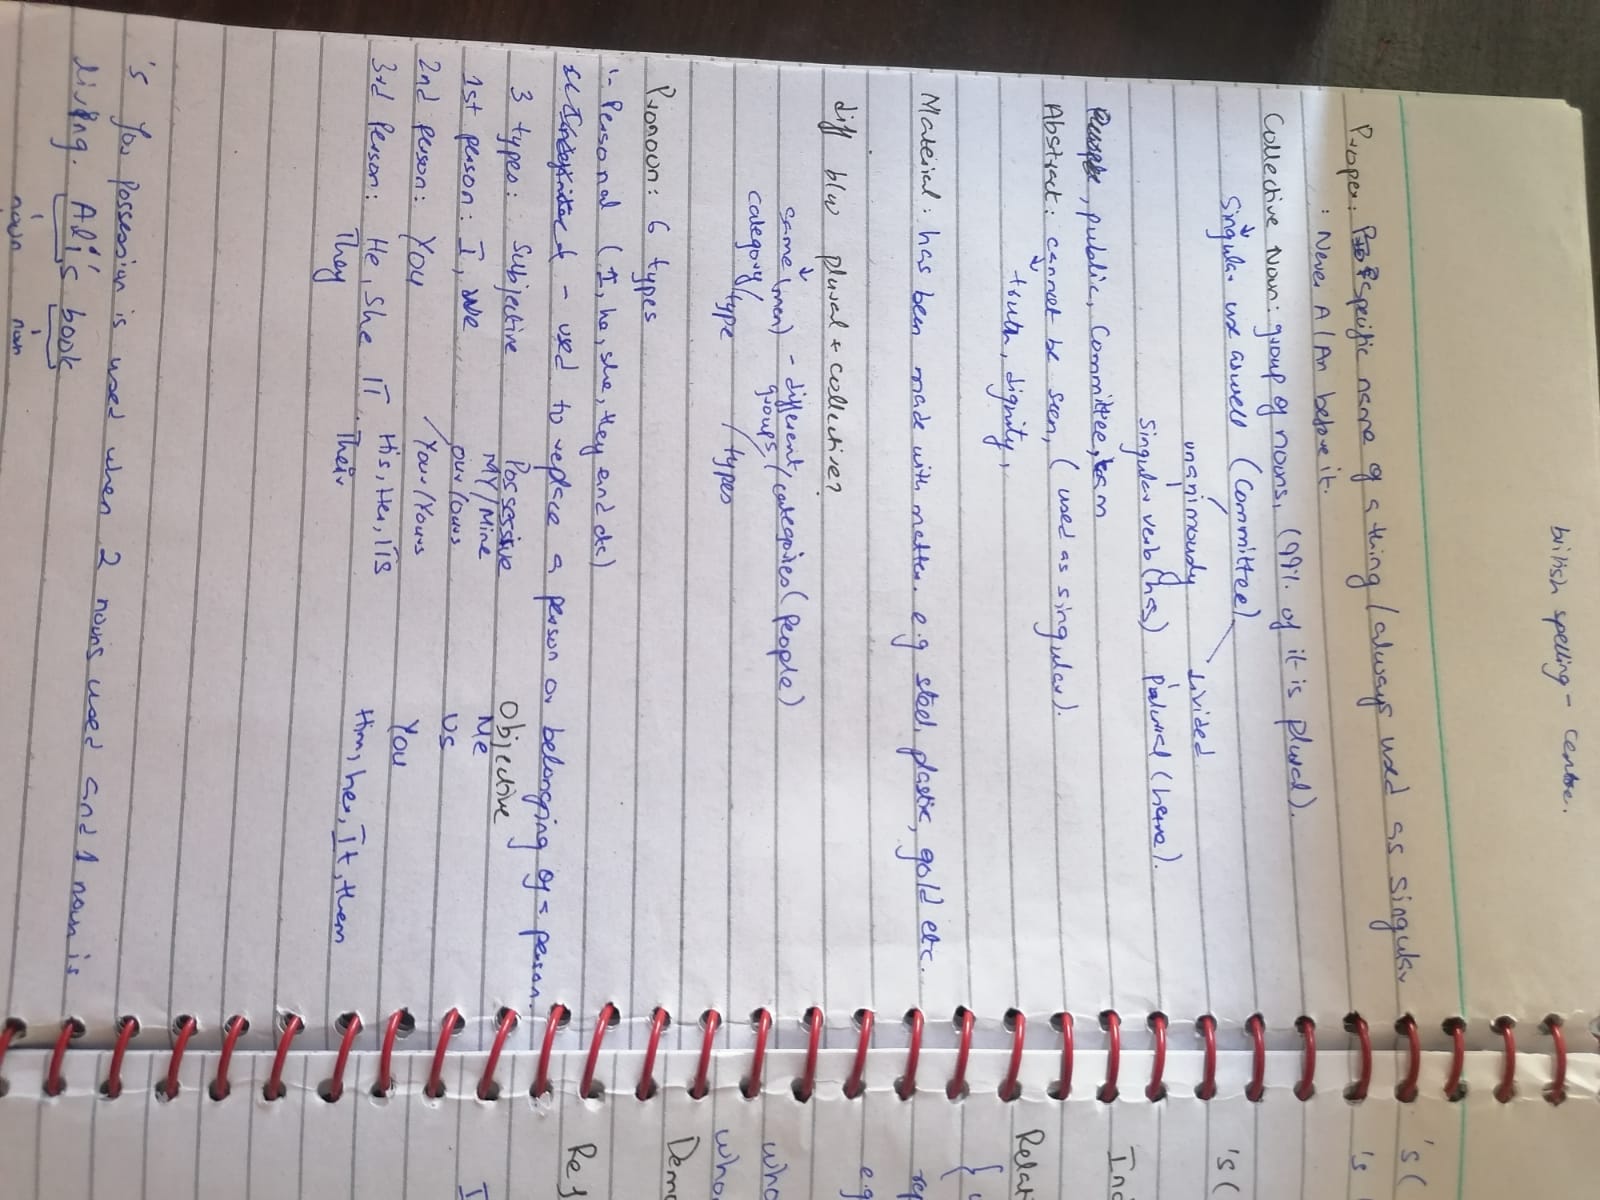 british spelling - centre.
Proper: Specific name of a thing / always used as singular
: Never A/An before it.
Collective Noun: group of nouns, (99% of it is plural).
Singular use aswell (Committee)
unanimously divided
Singular verb (has) (have).
, public, Committee, team
Abstract: cannot be seen, (used as singular).
truth, dignity,
Material: has been made with matter. e.g steel, plastic, gold etc.
diff b/w plural + collective?
same (men) - different groups / categories (people)
category / type / types
Pronoun: 6 types
1- Personal (I, he, she, they and etc)
- used to replace a person or belonging of a person.
3 types: Subjective Possessive Objective
1st person: I, We MY/Mine Me
our/ours US
2nd person: You Your/Yours You
3rd Person: He, She IT His, Her, ITS Him, her, It, them
They Their
's for possession is used when 2 nouns used and 1 noun is
living. Ali's book
noun noun
's (
's
's (
Relat
{
e.g
who
who